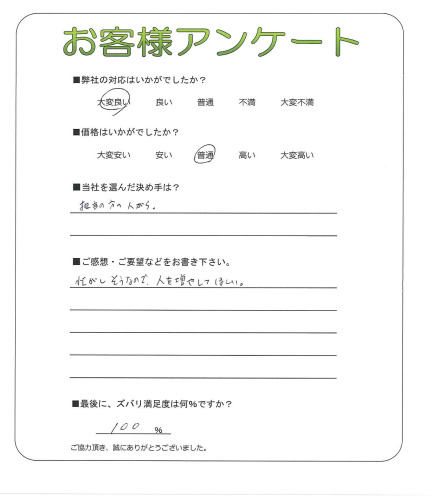 お客様アンケート
■弊社の対応はいかがでしたか？
大変良い 良い 普通 不満 大変不満
■価格はいかがでしたか？
大変安い 安い 普通 高い 大変高い
■当社を選んだ決め手は？
担当の方の人がら。
■ご感想・ご要望などをお書き下さい。
忙がしそうなので、人を増やしてほしい。
■最後に、ズバリ満足度は何%ですか？
100 %
ご協力頂き、誠にありがとうございました。